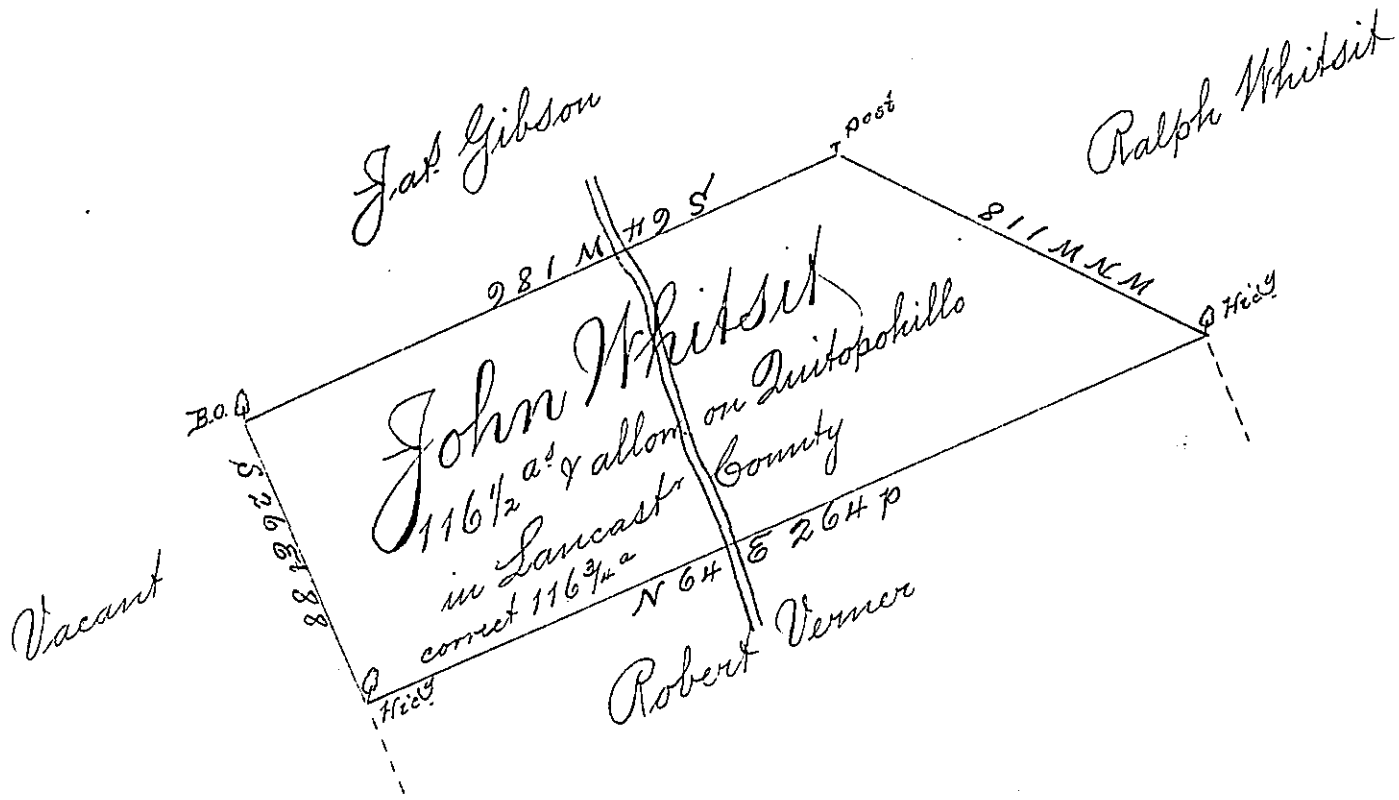 Jas. Gibson
post
Ralph Whitsit
S 64 W 186
WNW 118
Hicy
B.O.
John Whitsit
116 1/2 as & allow. on Quitopohillo
in Lancastr County
correct 116 3/4 a
S 26 E 88
N 64 E 264 p
Vacant
Hicy
Robert Verner